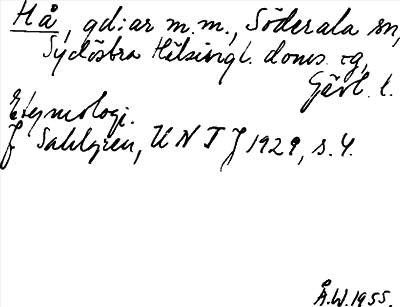 Hå, gd:ar m.m., Söderala sn,
Sydöstra Hälsingl. doms. og,
Gävl. l.
Etymologi.
J Sahlgren, UNTJ 1929, s. 4.
Å.W. 1955.